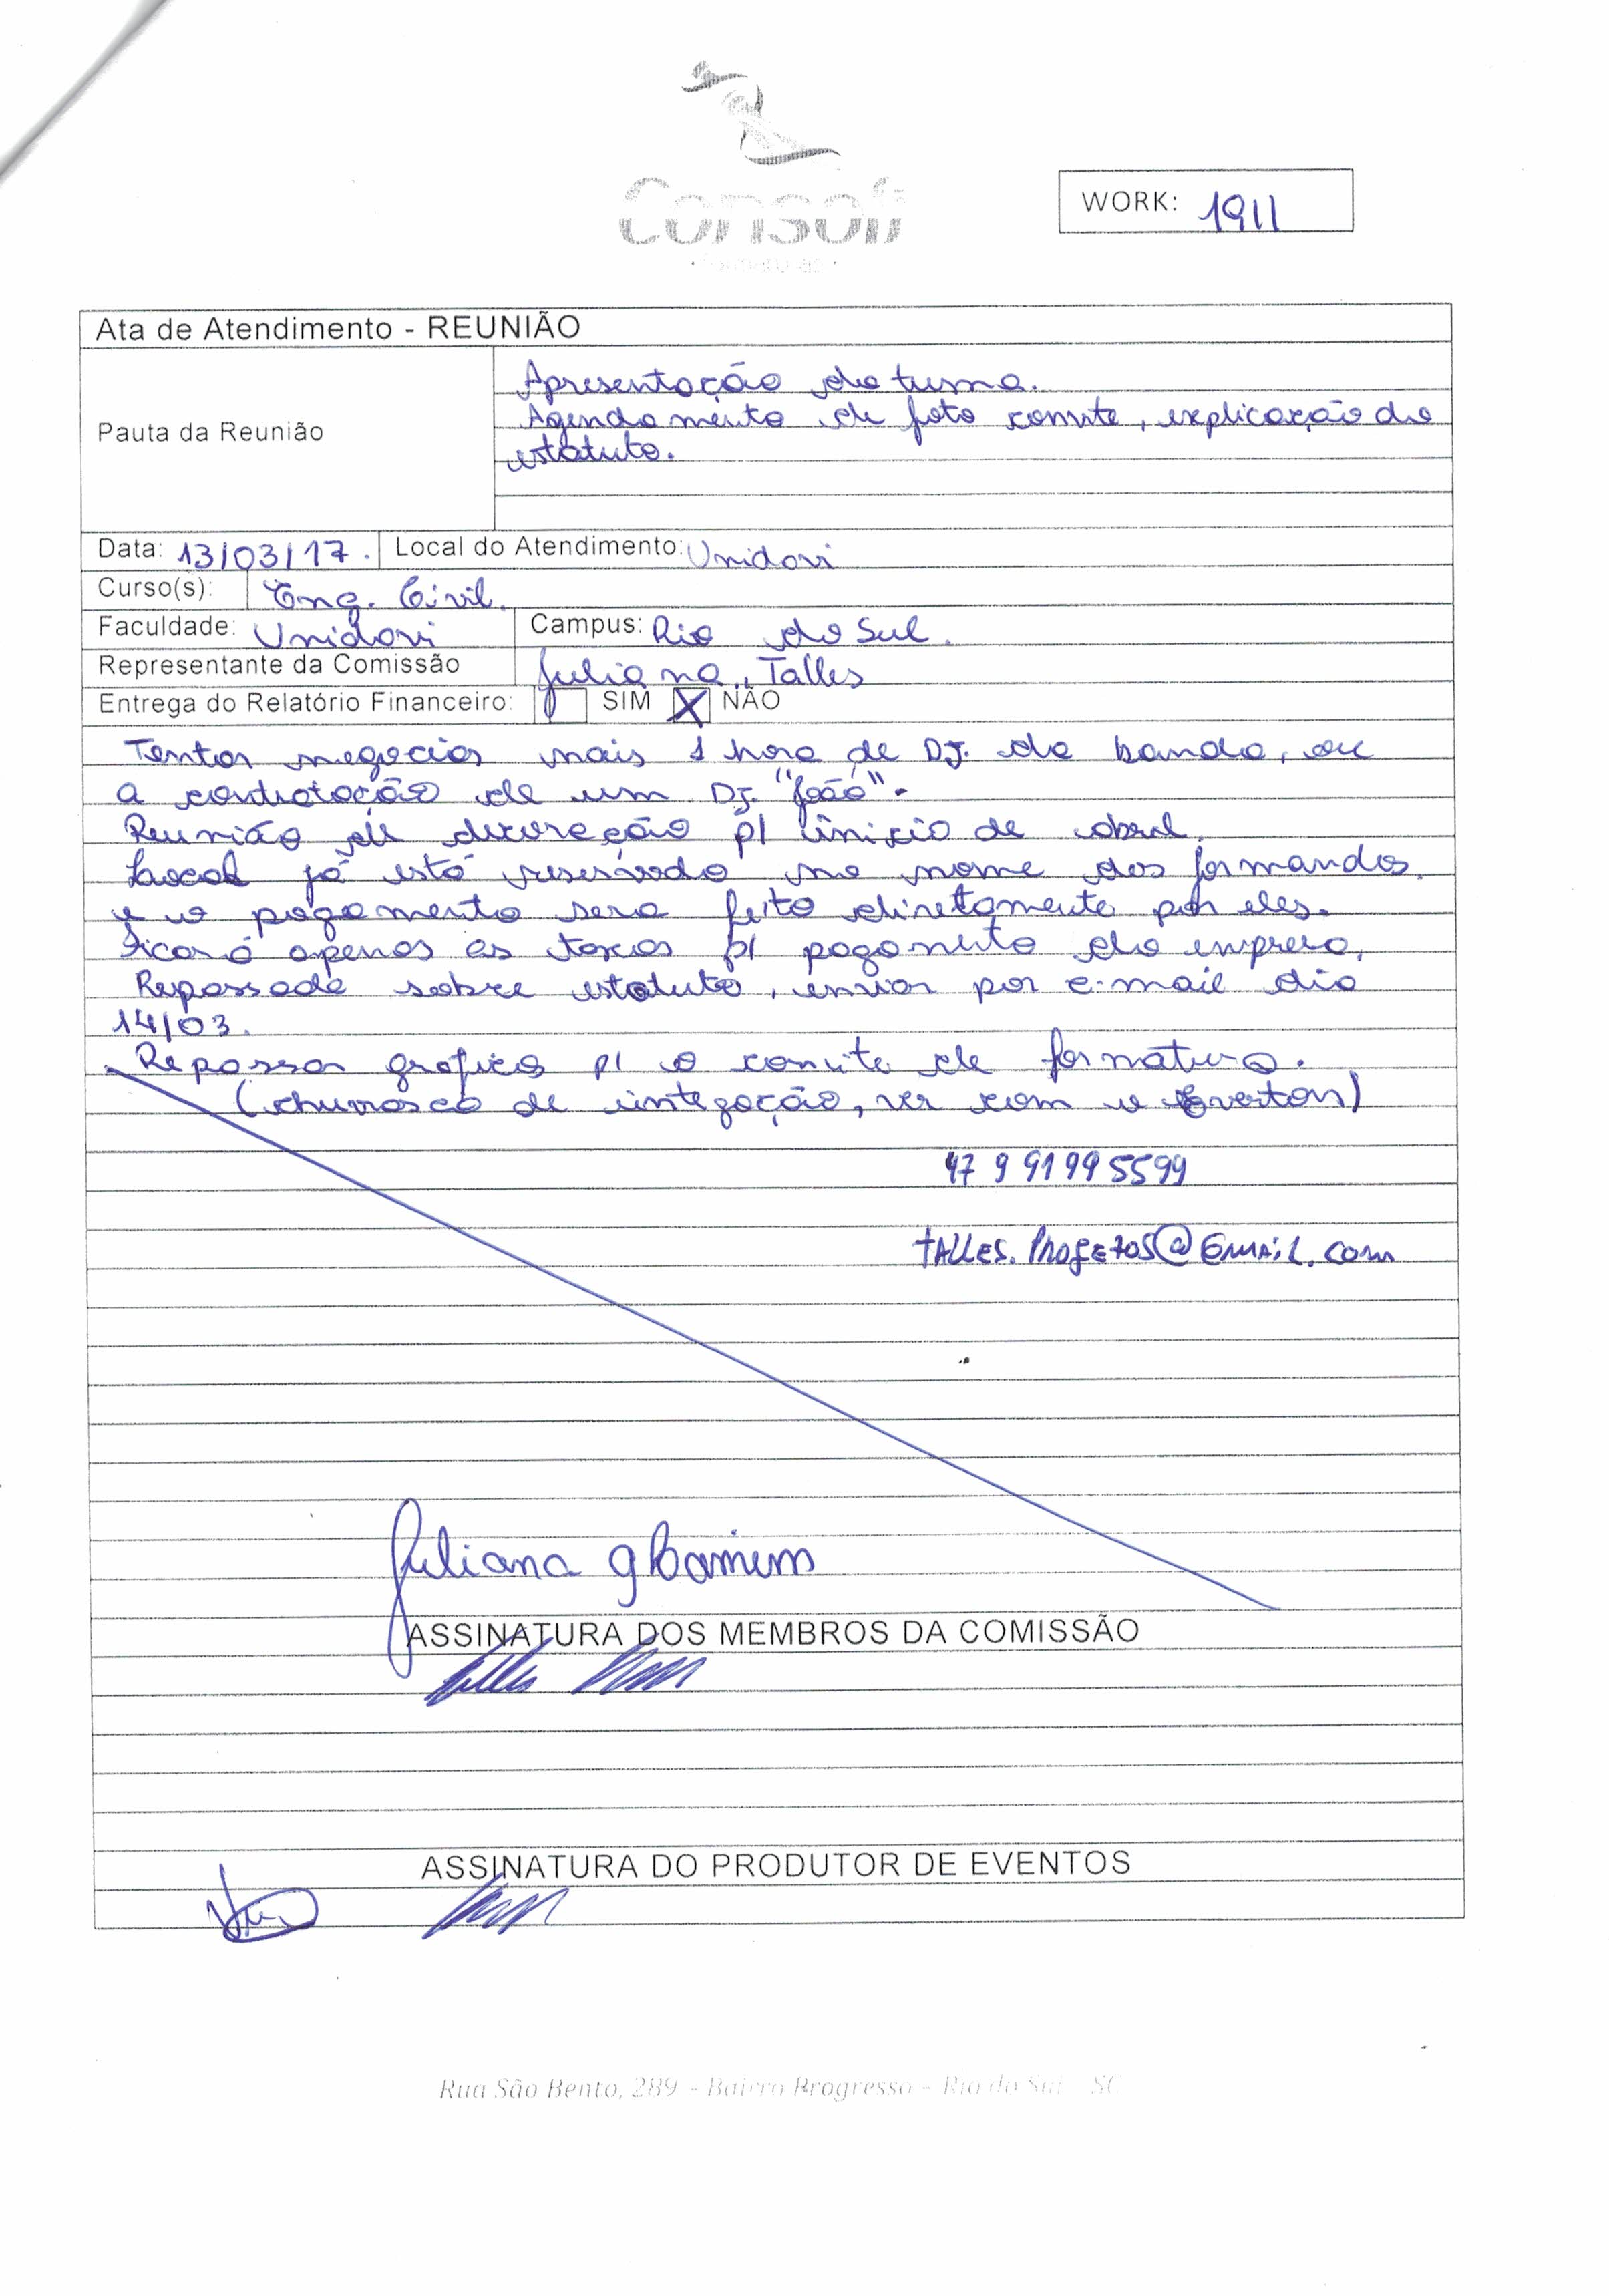 Consoli
• formaturas •
WORK: 1911
Ata de Atendimento - REUNIÃO
Pauta da Reunião
Apresentação da turma.
Agendamento de foto convite, explicação do
estatuto.
Data: 13/03/17. Local do Atendimento: Unidavi
Curso(s): Eng. Civil.
Faculdade: Unidavi Campus: Rio do Sul.
Representante da Comissão Juliana, Talles
Entrega do Relatório Financeiro: SIM X NÃO
Tentar negociar mais 1 hora de DJ. da banda, ou
a contratação de um DJ. "João".
Reunião de decoração p/ início de abril.
Local já está reservado no nome dos formandos.
e o pagamento sera feito diretamente por eles.
Ficará apenas as taxas p/ pagamento da empresa,
Repassado sobre estatuto, enviar por e-mail dia
14/03.
Repassar gráfica p/ o convite de formatura.
(churrasco de integação, ver com o Everton)
47 9 9199 5599
TALLES.PROJETOS@GMAIL.COM
Juliana
ASSINATURA DOS MEMBROS DA COMISSÃO
Talles
ASSINATURA DO PRODUTOR DE EVENTOS
Rua São Bento, 289 - Bairro Progresso - Rio do Sul - SC